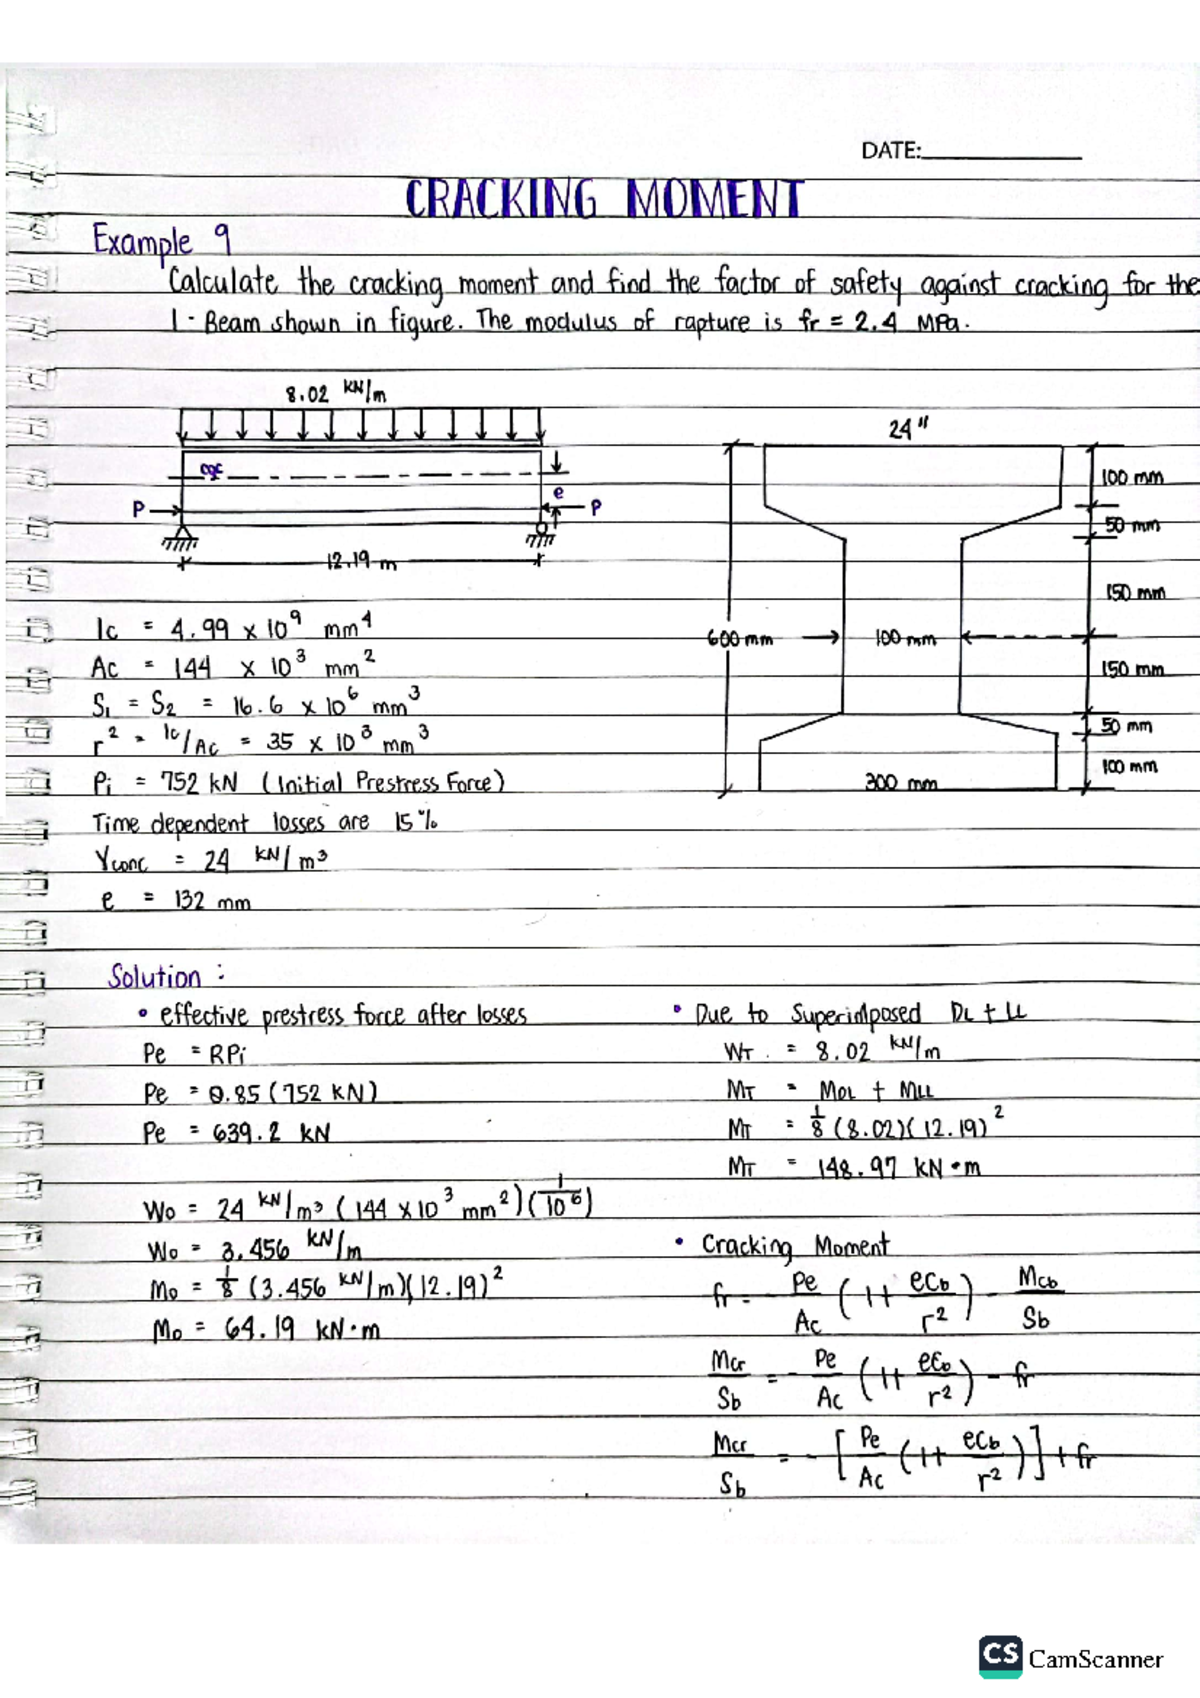 DATE:
CRACKING MOMENT
Example 9
Calculate the cracking moment and find the factor of safety against cracking for the
I - Beam shown in figure. The modulus of rapture is fr = 2.4 MPa.
8.02 kN/m
cgc
e
P
P
12.19 m
24"
100 mm
50 mm
150 mm
600 mm
100 mm
150 mm
50 mm
100 mm
300 mm
Ic = 4.99 x 10⁹ mm⁴
Ac = 144 x 10³ mm²
S₁ = S₂ = 16.6 x 10⁶ mm³
r² = Ic/Ac = 35 x 10³ mm³
Pi = 752 kN (Initial Prestress Force)
Time dependent losses are 15%
γconc = 24 kN/m³
e = 132 mm
Solution :
• effective prestress force after losses
Pe = RPi
Pe = 0.85 (752 KN)
Pe = 639.2 kN
Wo = 24 kN/m³ (144 x 10³ mm²)(1/10⁶)
Wo = 3.456 kN/m
Mo = 1/8 (3.456 kN/m)(12.19)²
Mo = 64.19 kN·m
• Due to Superimposed DL + LL
WT = 8.02 kN/m
MT = MDL + MLL
MT = 1/8 (8.02)(12.19)²
MT = 148.97 kN·m
• Cracking Moment
fr = - Pe/Ac (1 + eCb/r²) - Mcb/Sb
Mcr/Sb = - Pe/Ac (1 + eCb/r²) - fr
Mcr/Sb = - [Pe/Ac (1 + eCb/r²)] + fr
CS CamScanner